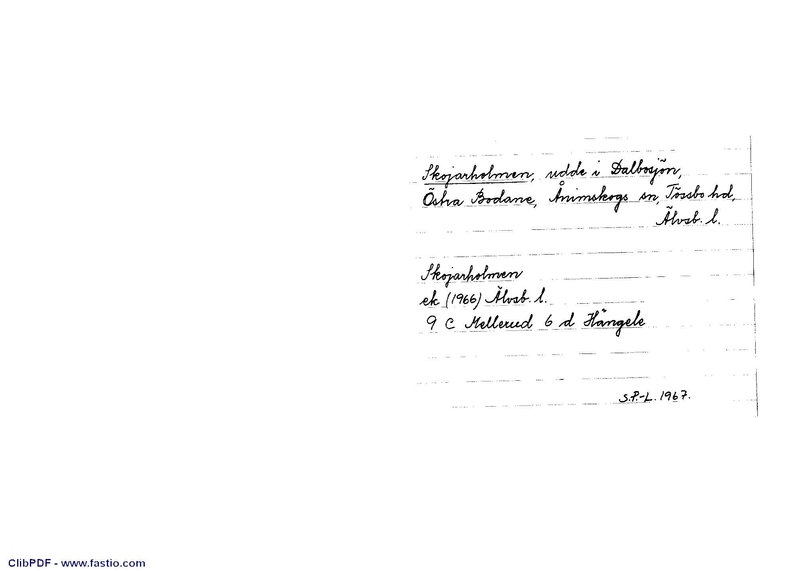 Skojarholmen, udde i Dalbosjön,
Östra Bodane, Ånimskogs sn, Tössbo hd,
Älvsb. l.
Skojarholmen
ek (1966) Älvsb. l.
9 C Mellerud 6 d Hängele
S.P.-L. 1967.
ClibPDF - www.fastio.com